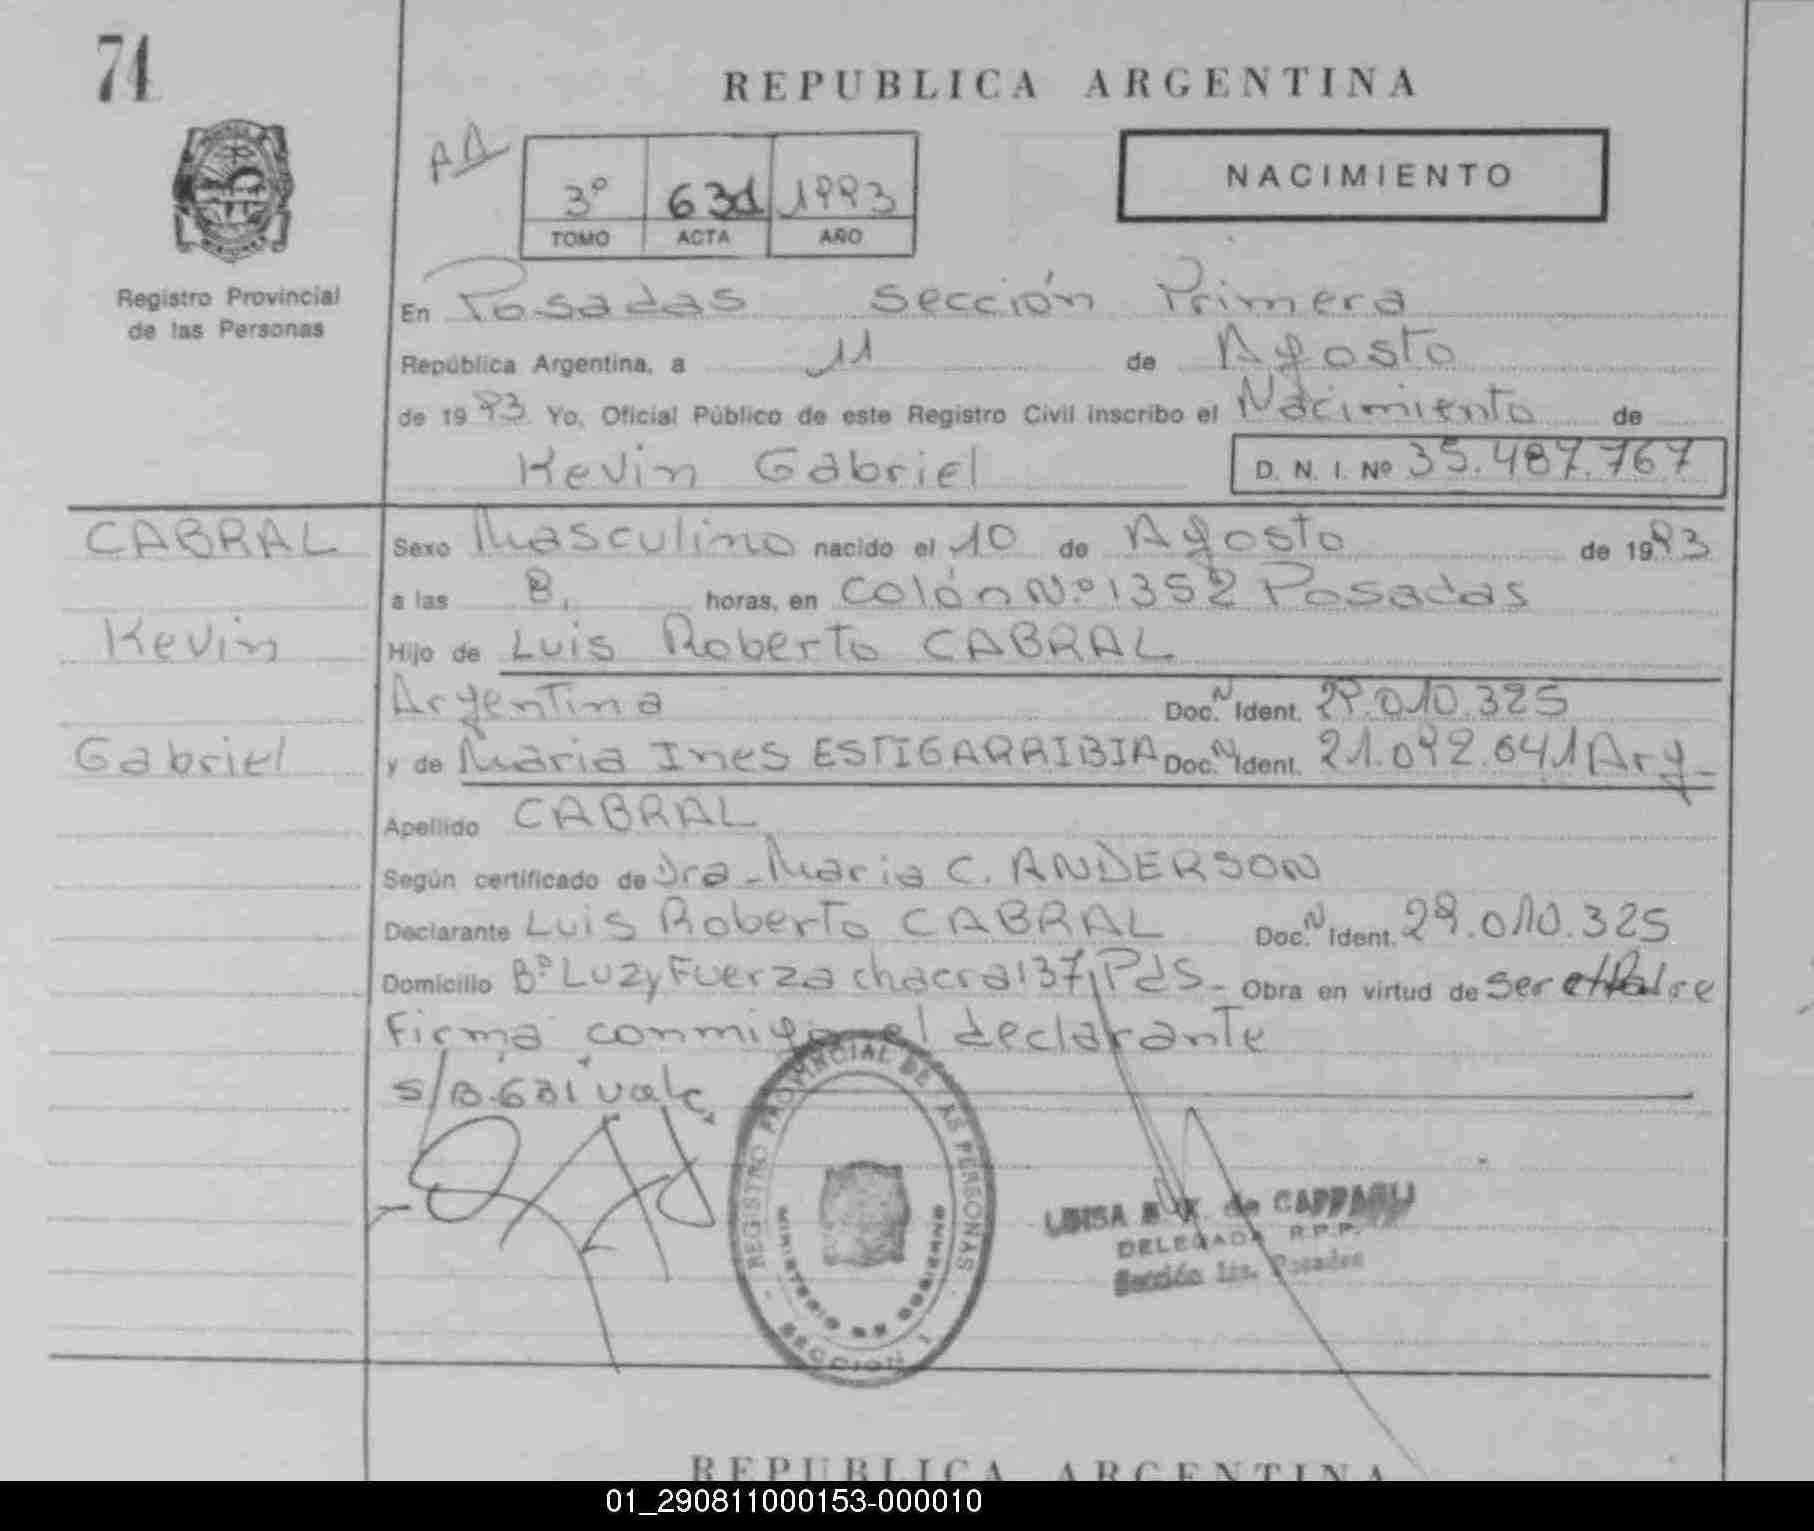 74
REPUBLICA ARGENTINA
AA
3º 631 1993
TOMO ACTA AÑO
NACIMIENTO
Registro Provincial
de las Personas
En Posadas Sección Primera
República Argentina, a 11 de Agosto
de 1993 Yo, Oficial Público de este Registro Civil inscribo el Nacimiento de
Kevin Gabriel D. N. I. Nº 35.487.767
CABRAL
Kevin
Gabriel
Sexo Masculino nacido el 10 de Agosto de 1993
a las 8, horas, en Colón N.º 1352 Posadas
Hijo de Luis Roberto CABRAL
Argentina Doc. N Ident. 29.010.325
y de Maria Ines ESTIGARRIBIA Doc. N Ident. 21.092.041 Arg-
Apellido CABRAL
Según certificado de Dra- Maria C. ANDERSON
Declarante Luis Roberto CABRAL Doc. N Ident. 29.010.325
Domicilio Bº Luz y Fuerza chacra 137, Pds- Obra en virtud de ser el Padre
Firma conmigo el declarante
S/B. 631 vale,
REGISTRO PROVINCIAL DE LAS PERSONAS
MINISTERIO DE GOBIERNO
SECCION 1
LUISA de
DELEGADA R.P.P.
Sección 1ra. Posadas
REPUBLICA ARGENTINA
01_290811000153-000010